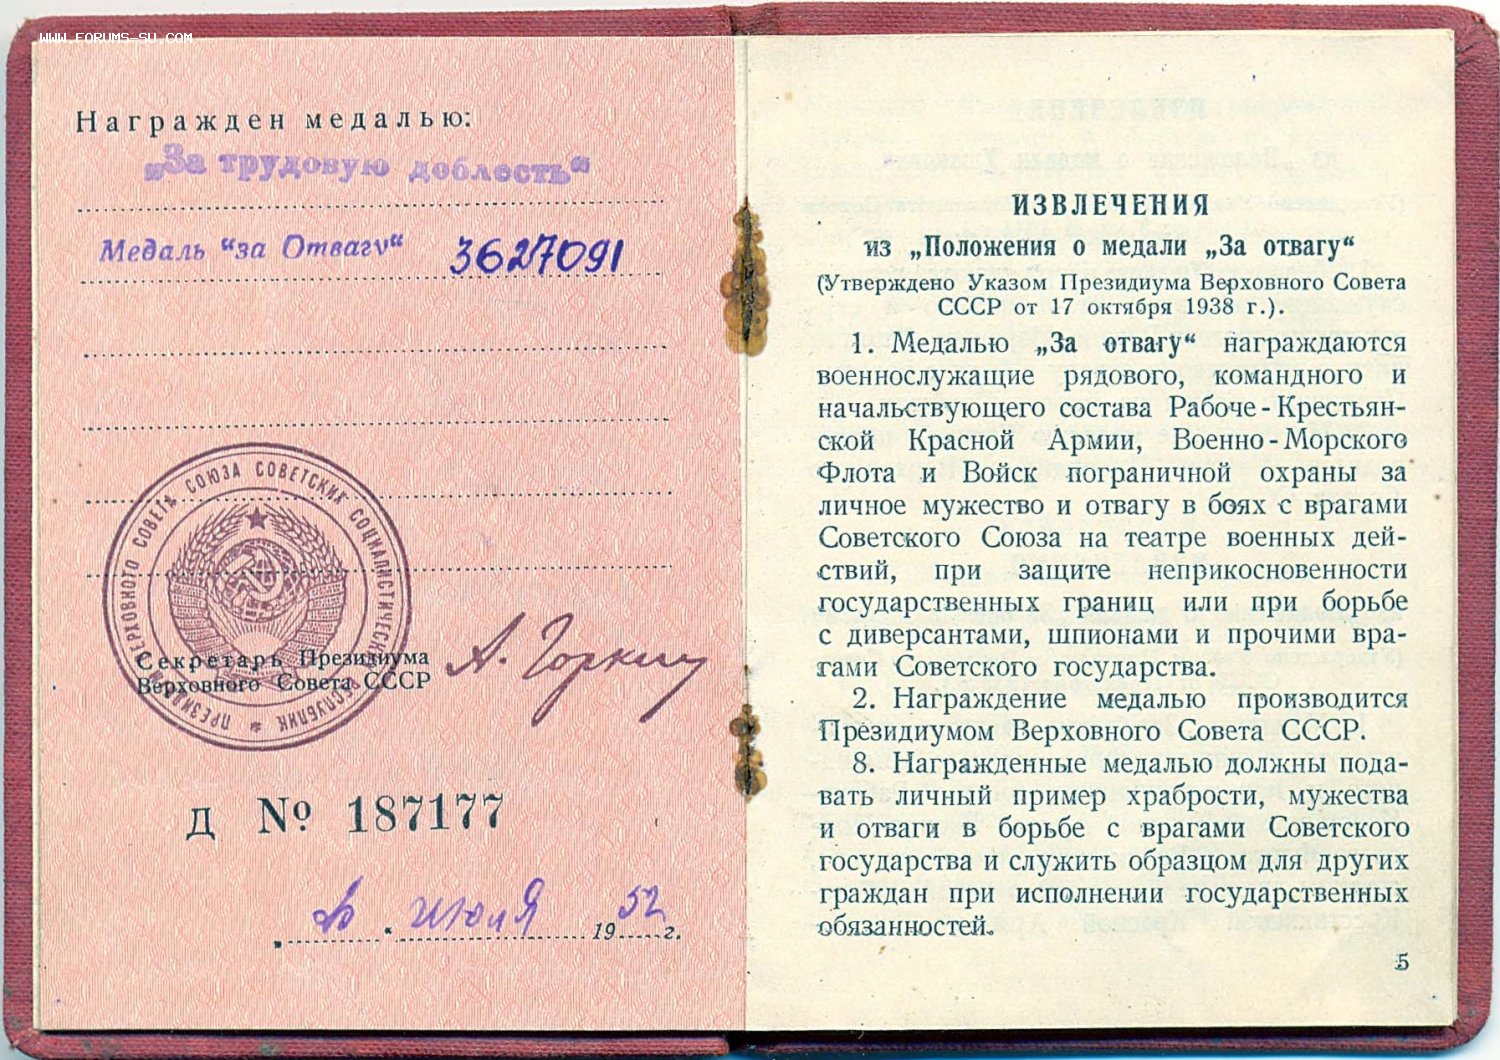 WWW.FORUMS-SU.COM
Награжден медалью:
„За трудовую доблесть“
Медаль “за Отвагу“ 3627091
ПРЕЗИДИУМ ВЕРХОВНОГО СОВЕТА СОЮЗА СОВЕТСКИХ СОЦИАЛИСТИЧЕСКИХ РЕСПУБЛИК
Секретарь Президиума
Верховного Совета СССР
А. Горкин
Д № 187177
июля 1952 г.
ИЗВЛЕЧЕНИЯ
из „Положения о медали „За отвагу“
(Утверждено Указом Президиума Верховного Совета
СССР от 17 октября 1938 г.).
1. Медалью „За отвагу“ награждаются
военнослужащие рядового, командного и
начальствующего состава Рабоче-Крестьян-
ской Красной Армии, Военно-Морского
Флота и Войск пограничной охраны за
личное мужество и отвагу в боях с врагами
Советского Союза на театре военных дей-
ствий, при защите неприкосновенности
государственных границ или при борьбе
с диверсантами, шпионами и прочими вра-
гами Советского государства.
2. Награждение медалью производится
Президиумом Верховного Совета СССР.
8. Награжденные медалью должны пода-
вать личный пример храбрости, мужества
и отваги в борьбе с врагами Советского
государства и служить образцом для других
граждан при исполнении государственных
обязанностей.
5